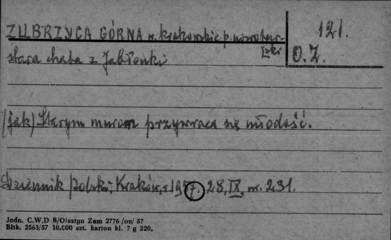 ZUBRZYCA GÓRNA w. krakowskie p. nowotar-
ski
121.
O.Z.
stara chata z Jabłonki
(jak) Starym murom przywraca się młodość.
Dziennik Polski, Kraków, r. 1957. 28.IX, nr. 231.
Jedn. C.W.D 8/Olsztyn Zam 2776 /on/ 57
Błtk. 2563/57 10.000 szt. karton kl. 7 g 220.